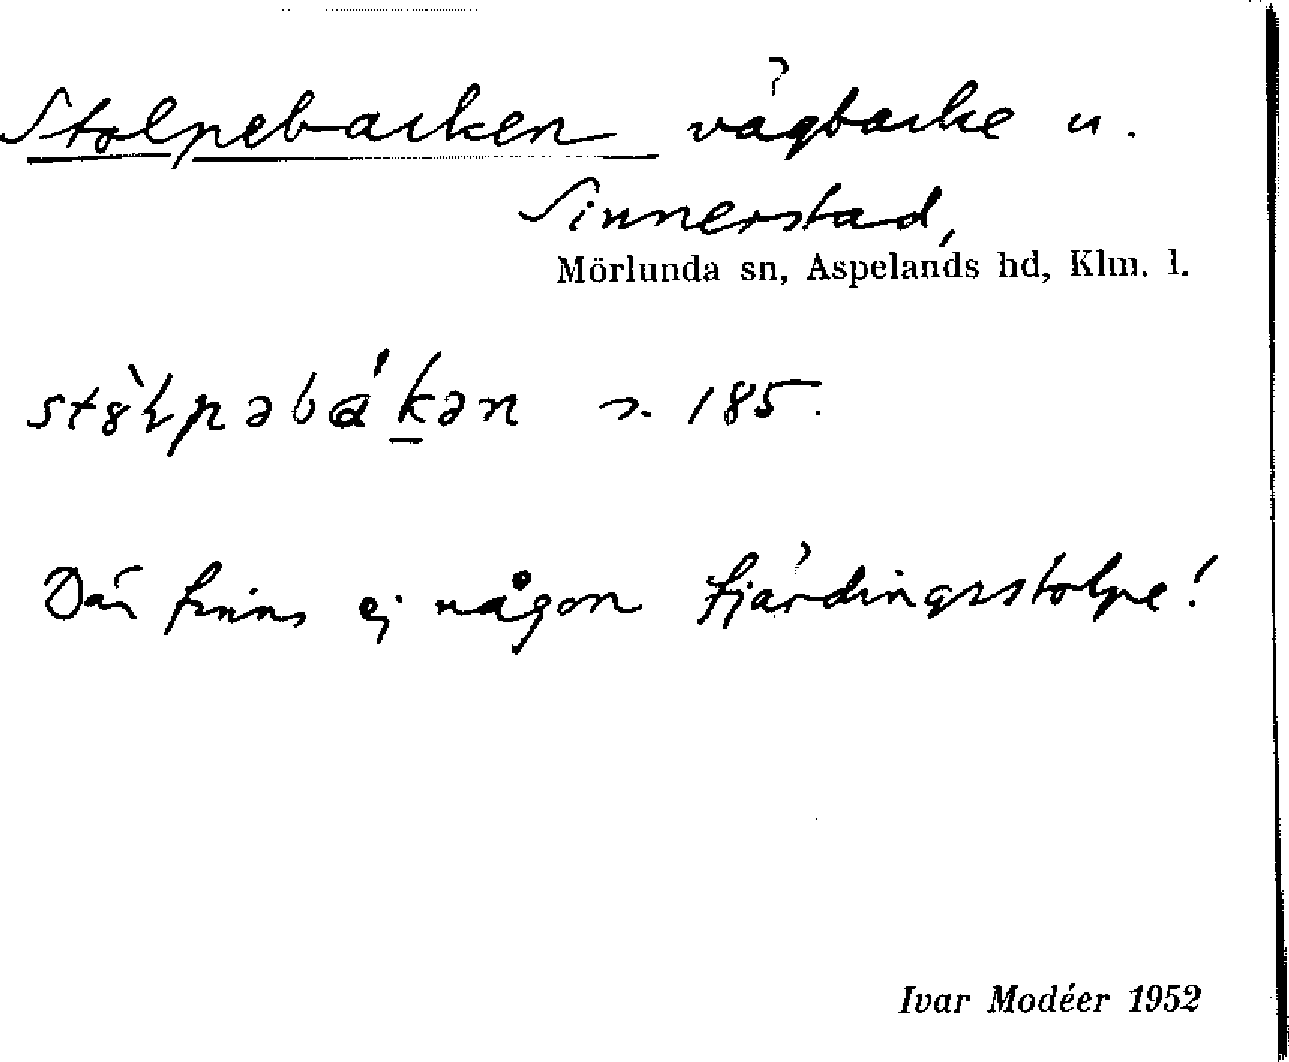 Stolpebacken vägbacke u.
Sinnerstad,
Mörlunda sn, Aspelands hd, Klm. l.
s. 185.
Där finns ej någon fjärdingsstolpe!
Ivar Modéer 1952